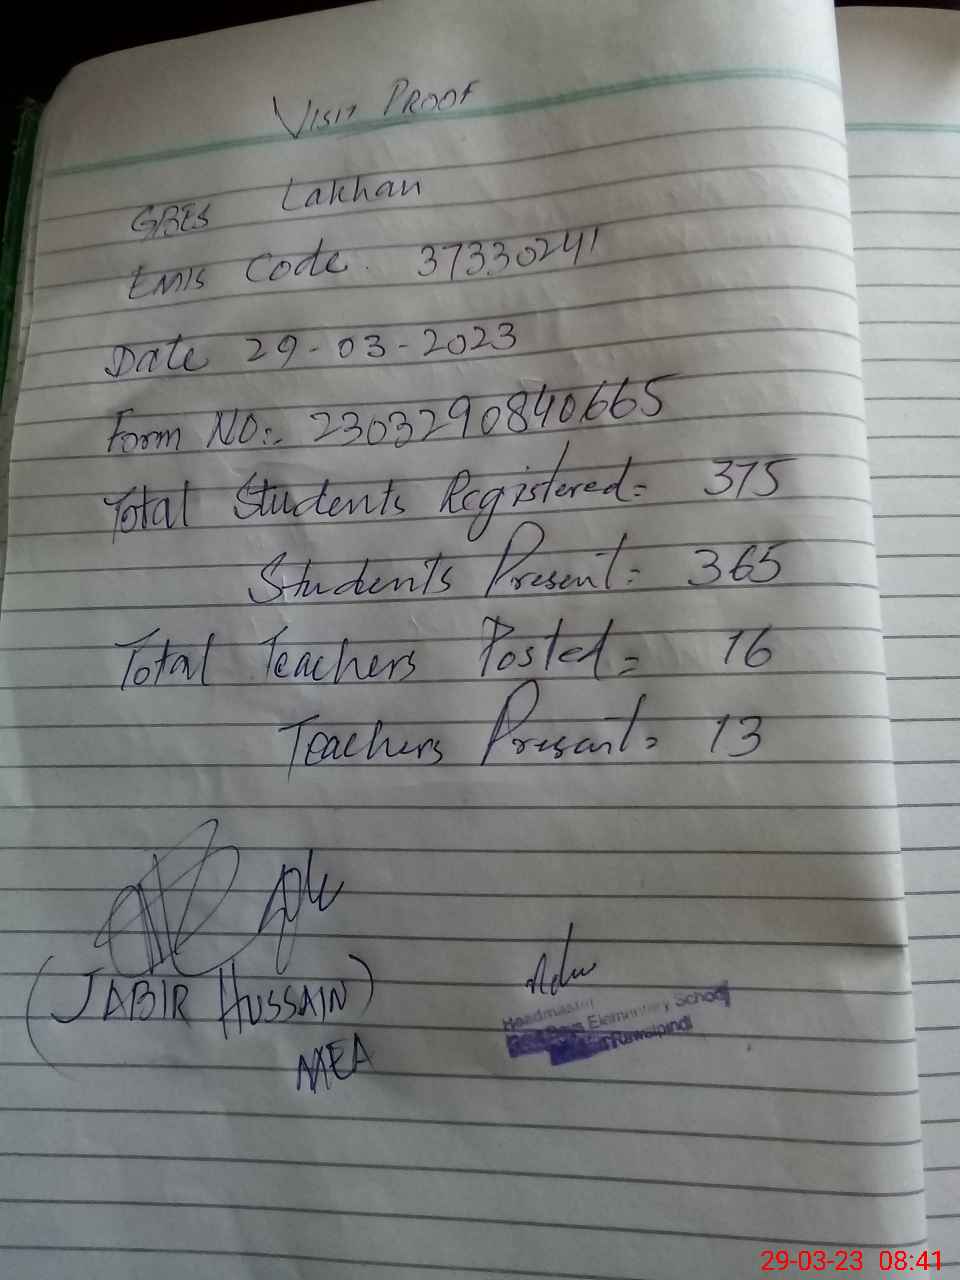 VISIT PROOF
GBES Lakhan
EMIS Code. 37330241
Date 29-03-2023
Form NO:. 2303290840665
Total Students Registered= 375
Students Present= 365
Total Teachers Posted= 16
Teachers Present= 13
(JABIR HUSSAIN)
MEA
Headmaster
Boys Elementary School
Rawalpindi
29-03-23 08:41